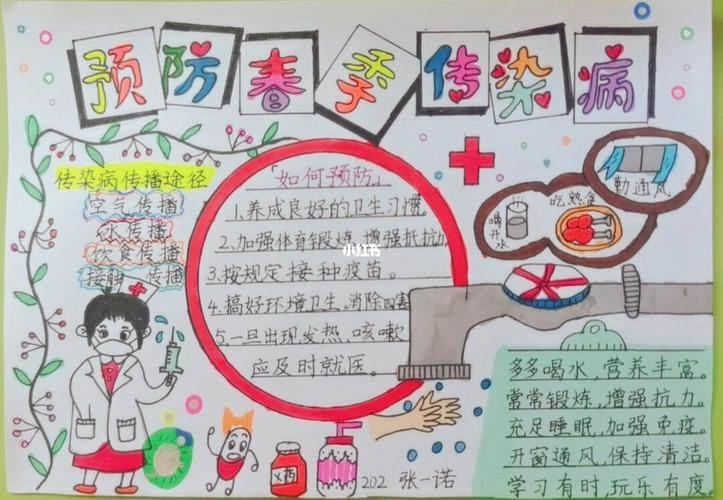 预防春季传染病
传染病传播途径
空气传播
水传播
饮食传播
接触 传播
「如何预防」
1.养成良好的卫生习惯。
2.加强体育锻炼,增强抵抗力
3.按规定接种疫苗。
4.搞好环境卫生,消除四害
5.一旦出现发热,咳嗽
应及时就医。
小红书
勤通风
吃熟食
喝开水
多多喝水,营养丰富。
常常锻炼,增强抗力。
充足睡眠,加强免疫。
开窗通风,保持清洁。
学习有时,玩乐有度
202 张一诺